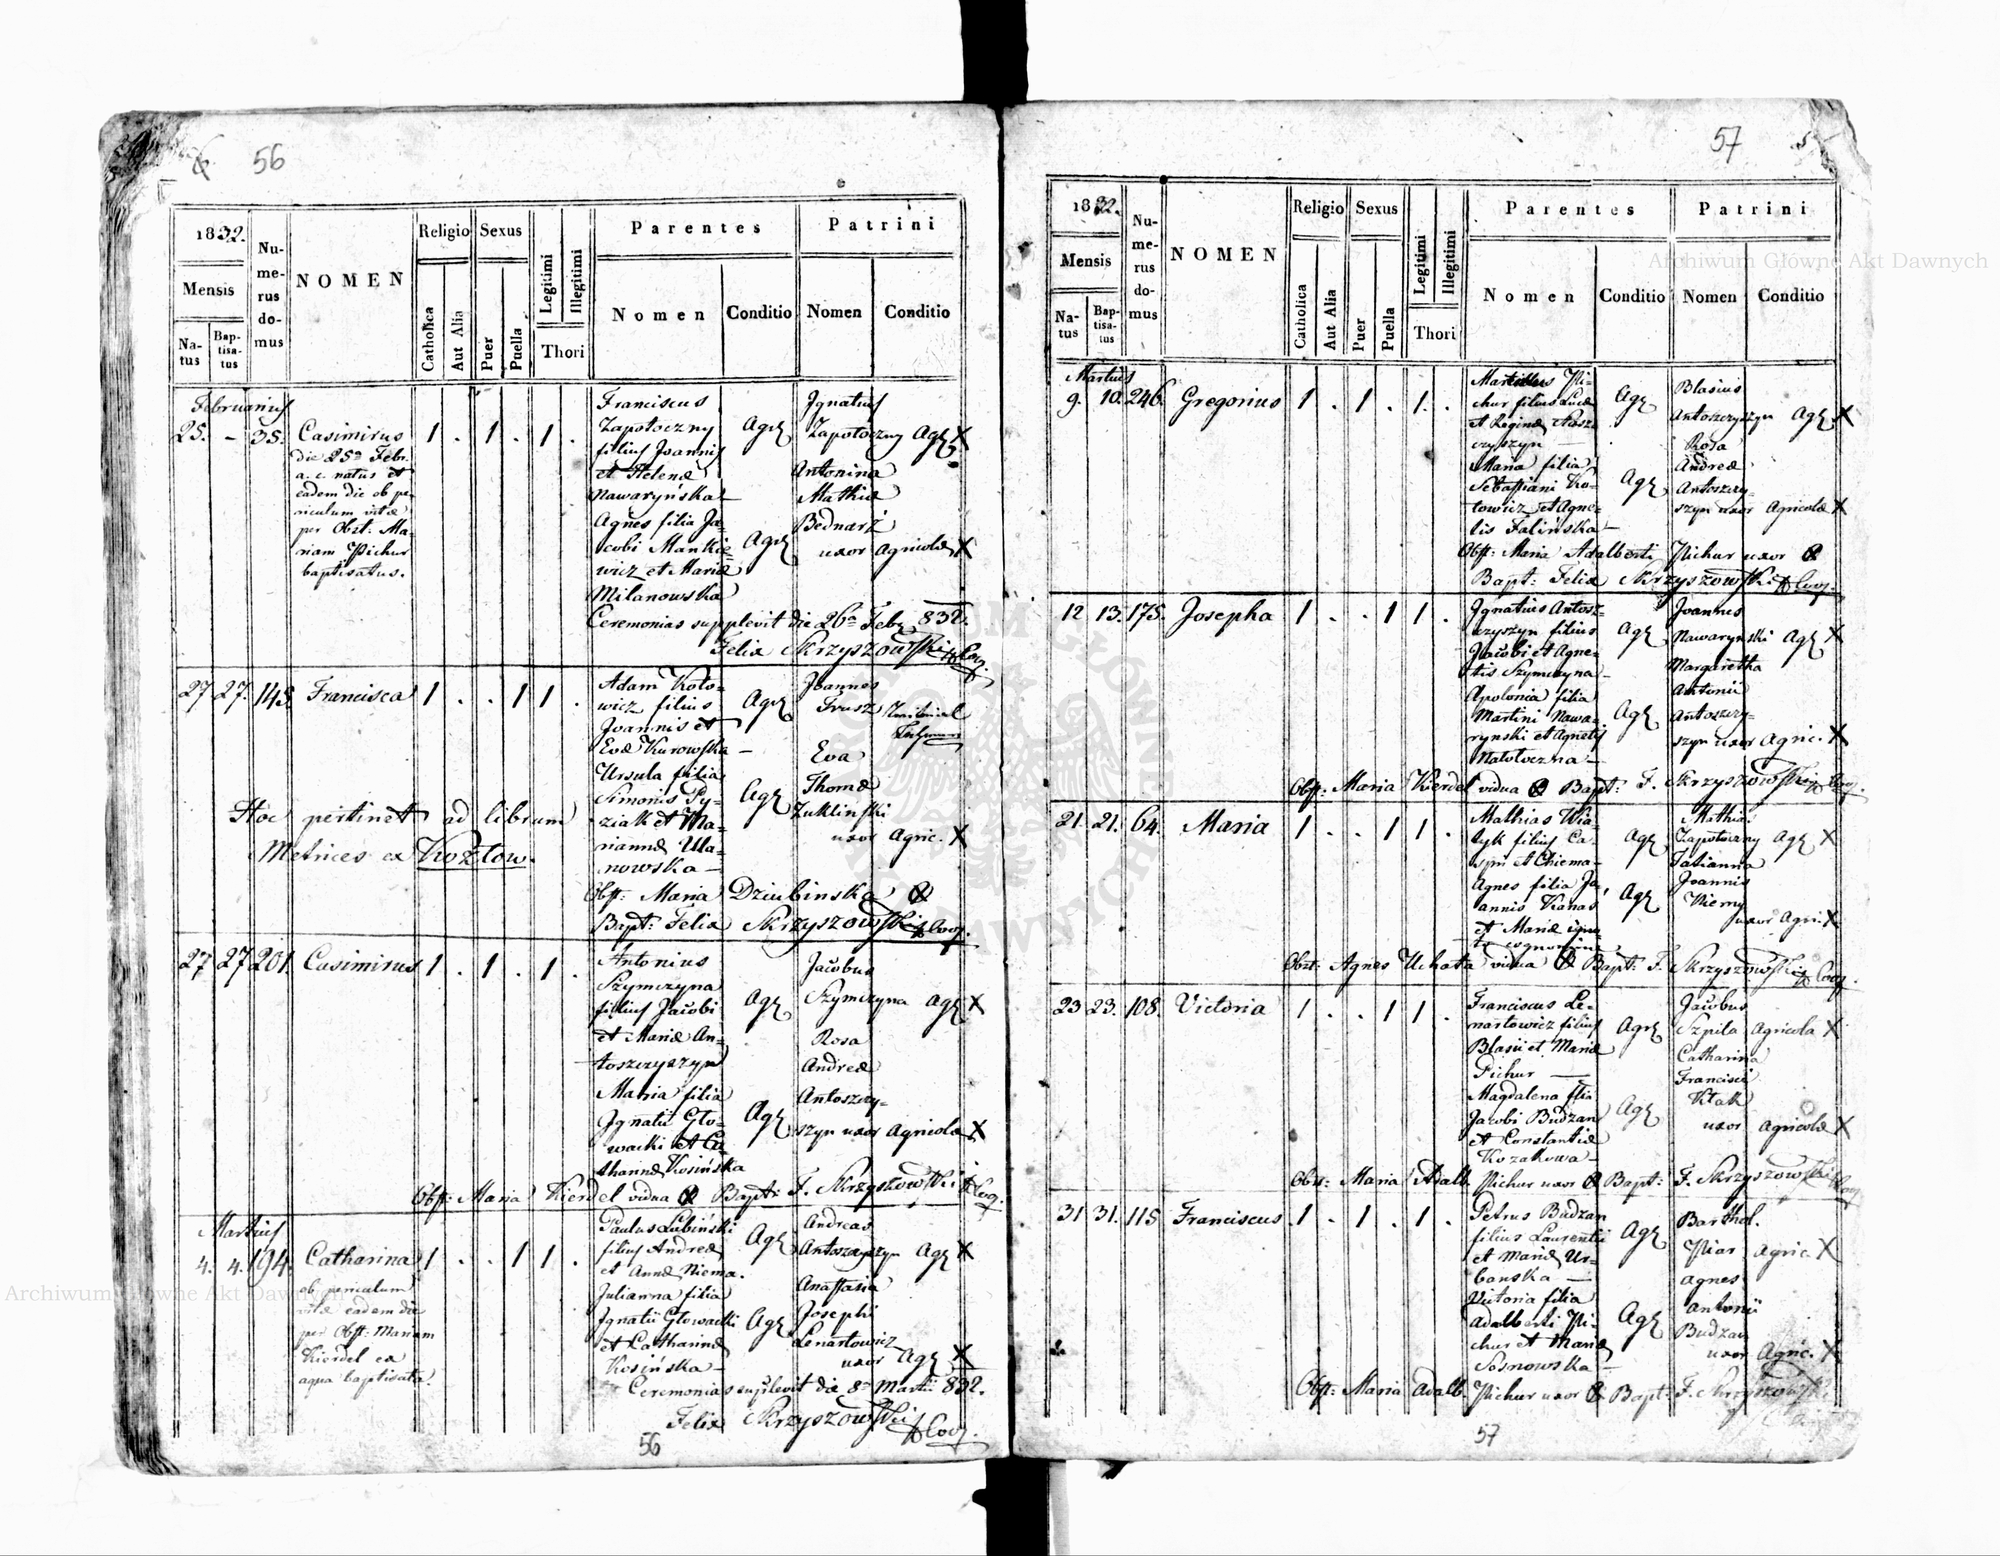 56
1832.
Mensis
Na-
tus
Bap-
tisa-
tus
Nu-
me-
rus
do-
mus
NOMEN
Religio
Catholica
Aut Alia
Sexus
Puer
Puella
Legitimi
Illegitimi
Thori
Parentes
Nomen
Conditio
Patrini
Nomen
Conditio
Februarius
25. - 35. Casimirus 1 . 1 . 1 .
die 25a Febr.
a. c. natus et
eadem die ob pe-
riculum vitæ
per Obst: Ma-
riam Pichur
baptisatus.
Franciscus
Zapotoczny
filius Joannis
et Helenæ
Nawaryńska
Agr
Agnes filia Ja-
cobi Mankie-
wicz et Mariæ
Milanowska
Agr
Ignatius
Zapotoczny Agr X
Antonina
Mathiæ
Bednarz
uxor Agricolæ X
Ceremonias supplevit die 26a Feb 832.
Felix Skrzyszowski Coop.
27 27. 145 Francisca 1 . . 1 1 .
Adam Koto-
wicz filius
Joannis et
Evæ Kurowska
Agr
Ursula filia
Simonis Py-
ziak et Ma-
riannæ Ula-
nowska
Agr
Joannes
Frusz
Eva
Thomæ
Zuklinski
uxor Agric. X
Hoc pertinet ad librum
Metrices ex Kozłow.
Obst: Maria Dziubinska
Bapt: Felix Skrzyszowski Coop.
27 27 201 Casimirus 1 . 1 . 1 .
Antonius
Szymczyna
filius Jacobi
et Mariæ An-
toszczyszyn
Agr
Maria filia
Ignatii Gło-
wacki et Ca-
tharinæ Kosińska
Agr
Jacobus
Szymczyna Agr X
Rosa
Andreæ
Antoszczy-
szyn uxor Agricolæ X
Obst: Maria Kierdel vidua Bapt: F. Skrzyszowski Coop.
Martius
4. 4. 194. Catharina 1 . . 1 1 .
ob periculum
vitæ eadem die
per Obst: Mariam
Kierdel ex
aqua baptisata.
Paulus Lubiński
filius Andreæ
et Annæ Niema.
Agr
Julianna filia
Ignatii Głowacki
et Catharinæ
Kosińska
Agr
Andreas
Antoszczyszyn Agr X
Anastasia
Josephi
Lenartowicz
uxor Agr X
Ceremonias suplevit die 8a Martii 832.
Felix Skrzyszowski Coop.
56
57
1832.
Mensis
Na-
tus
Bap-
tisa-
tus
Nu-
me-
rus
do-
mus
NOMEN
Religio
Catholica
Aut Alia
Sexus
Puer
Puella
Legitimi
Illegitimi
Thori
Parentes
Nomen
Conditio
Patrini
Nomen
Conditio
Martius
9. 10. 246. Gregorius 1 . 1 . 1 .
Pi-
chur filius Lucæ
et Reginæ
czyszyn
Agr
Maria filia
Sebastiani Ko-
towicz et Agne-
tis Falińska
Agr
Blasius
Antoszczyszyn Agr X
Rosa
Andreæ
Antoszczy-
szyn uxor Agricolæ X
Obst: Maria Adalberti Pichur uxor
Bapt: Felix Skrzyszowski Coop.
12 13. 175. Josepha 1 . . 1 1 .
Ignatius Antosz-
czyszyn filius
Jacobi et Agne-
tis Szymczyna
Agr
Apolonia filia
Martini Nawa-
rynski et Agnetis
Natotoczna
Agr
Joannes
Nawarynski Agr X
Margaretha
Antonii
Antoszczy-
szyn uxor Agric. X
Obst: Maria Kierdel vidua Bapt: F. Skrzyszowski Coop.
21. 21. 64. Maria 1 . . 1 1 .
Mathias Wia-
tyk filius Ca-
spri et Chiema
Agr
Agnes filia Jo-
annis Kanas
et Mariæ igno-
ti cognomine
Agr
Mathias
Zapotoczny Agr X
Tatianna
Joannis
Niemy
uxor Agri. X
Obst: Agnes Uchata vidua Bapt: F. Skrzyszowski Coop.
23 23. 108. Victoria 1 . . 1 1 .
Franciscus Le-
nartowicz filius
Blasii et Mariæ
Pichur
Agr
Magdalena filia
Jacobi Budzan
et Constantiæ
Kozakowa
Agr
Jacobus
Szpila Agricola X
Catharina
Francisci
Ktak
uxor Agricolæ X
Obst: Maria Adalb. Pichur uxor Bapt: F. Skrzyszowski Coop
31 31. 115 Franciscus 1 . 1 . 1 .
Petrus Budzan
filius Laurentii
et Mariæ Ur-
banska
Agr
Victoria filia
Adalberti Pi-
chur et Mariæ
Sosnowska
Agr
Barthol.
Piar Agric. X
Agnes
Antonii
Budzan
uxor Agric. X
Obst: Maria Adalb. Pichur uxor Bapt: F. Skrzyszowski
57
Archiwum Główne Akt Dawnych
Archiwum Główne Akt Dawnych
ARCHIWUM GŁÓWNE AKT DAWNYCH